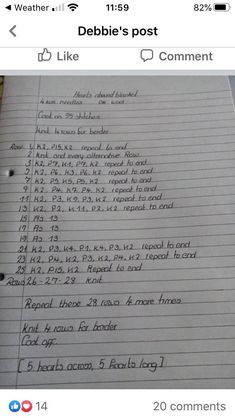 Weather
11:59
82%
Debbie's post
Like
Comment
Hearts absued blanket
4 mm needles DK wool
Cast on 79 stitches
Knit 4 rows for border
Row 1 K2, P15, K2 repeat to end
2 Knit and every alternative Row
3 K2, P7, K1, P7, K2 repeat to end
5 K2, P6, K3, P6, K2 repeat to end
7 K2, P5, K5, P5, K2 repeat to end
9 K2, P4, K7, P4, K2 repeat to end
11 K2, P3, K9, P3, K2 repeat to end
13 K2, P2, K11, P2, K2 repeat to end
15 As 13
17 As 13
19 As 13
21 K2, P3, K4, P1, K4, P3, K2 repeat to end
23 K2, P4, K2, P3, K2, P4, K2 repeat to end
25 K2, P15, K2 Repeat to end
Rows 26-27-28 Knit
Repeat these 28 rows 4 more times
Knit 4 rows for border
Cast off.
[5 hearts across, 5 hearts long]
14
20 comments